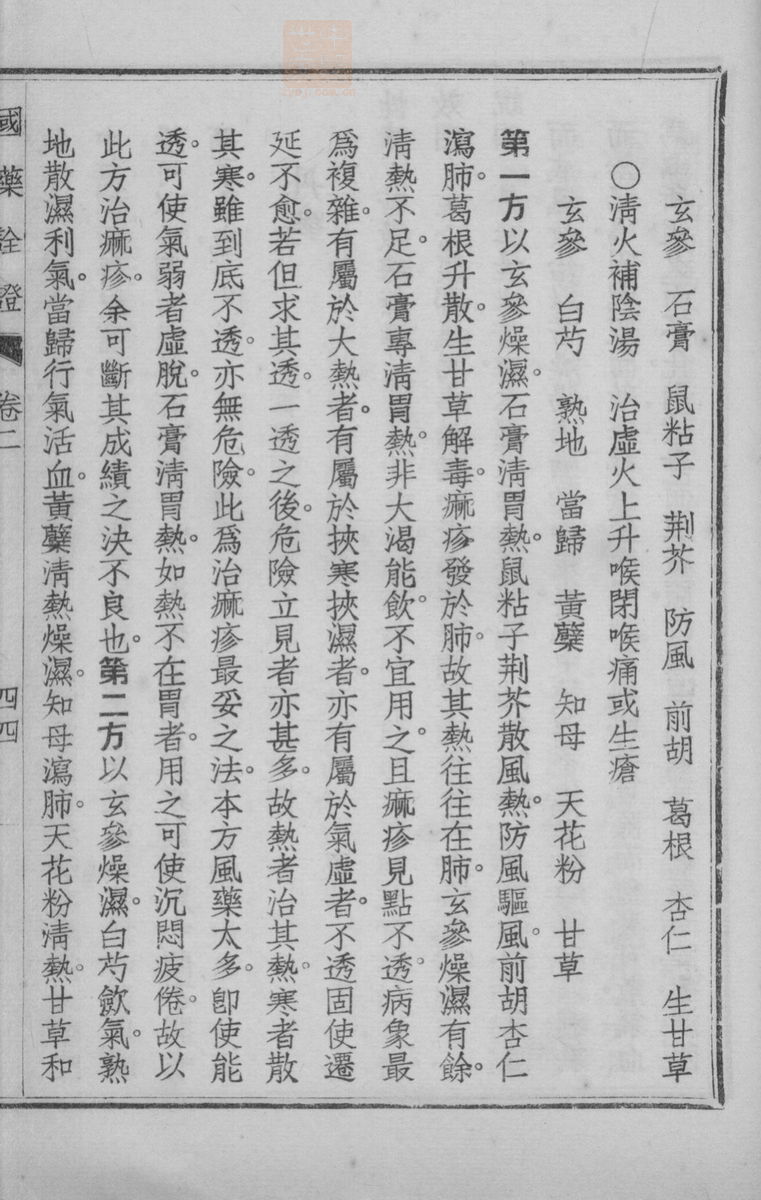 玄參　石膏　鼠粘子　荆芥　防風　前胡　葛根　杏仁　生甘草
○淸火補陰湯　治虛火上升喉閉喉痛或生瘡
玄參　白芍　熟地　當歸　黃蘗　知母　天花粉　甘草
第一方以玄參燥濕。石膏淸胃熱。鼠粘子荆芥散風熱。防風驅風。前胡杏仁
瀉肺。葛根升散。生甘草解毒。痲疹發於肺。故其熱往往在肺。玄參燥濕有餘。
淸熱不足。石膏專淸胃熱。非大渴能飲。不宜用之。且痲疹見點不透。病象最
爲複雜。有屬於大熱者。有屬於挾寒挾濕者。亦有屬於氣虛者。不透固使遷
延不愈。若但求其透。一透之後。危險立見者亦甚多。故熱者治其熱。寒者散
其寒。雖到底不透。亦無危險。此爲治痲疹最妥之法。本方風藥太多。卽使能
透。可使氣弱者虛脫。石膏淸胃熱。如熱不在胃者。用之可使沉悶疲倦。故以
此方治痲疹。余可斷其成績之決不良也。第二方以玄參燥濕。白芍斂氣。熟
地散濕利氣。當歸行氣活血。黃蘗淸熱燥濕。知母瀉肺。天花粉淸熱。甘草和
國藥詮證　卷二　四四